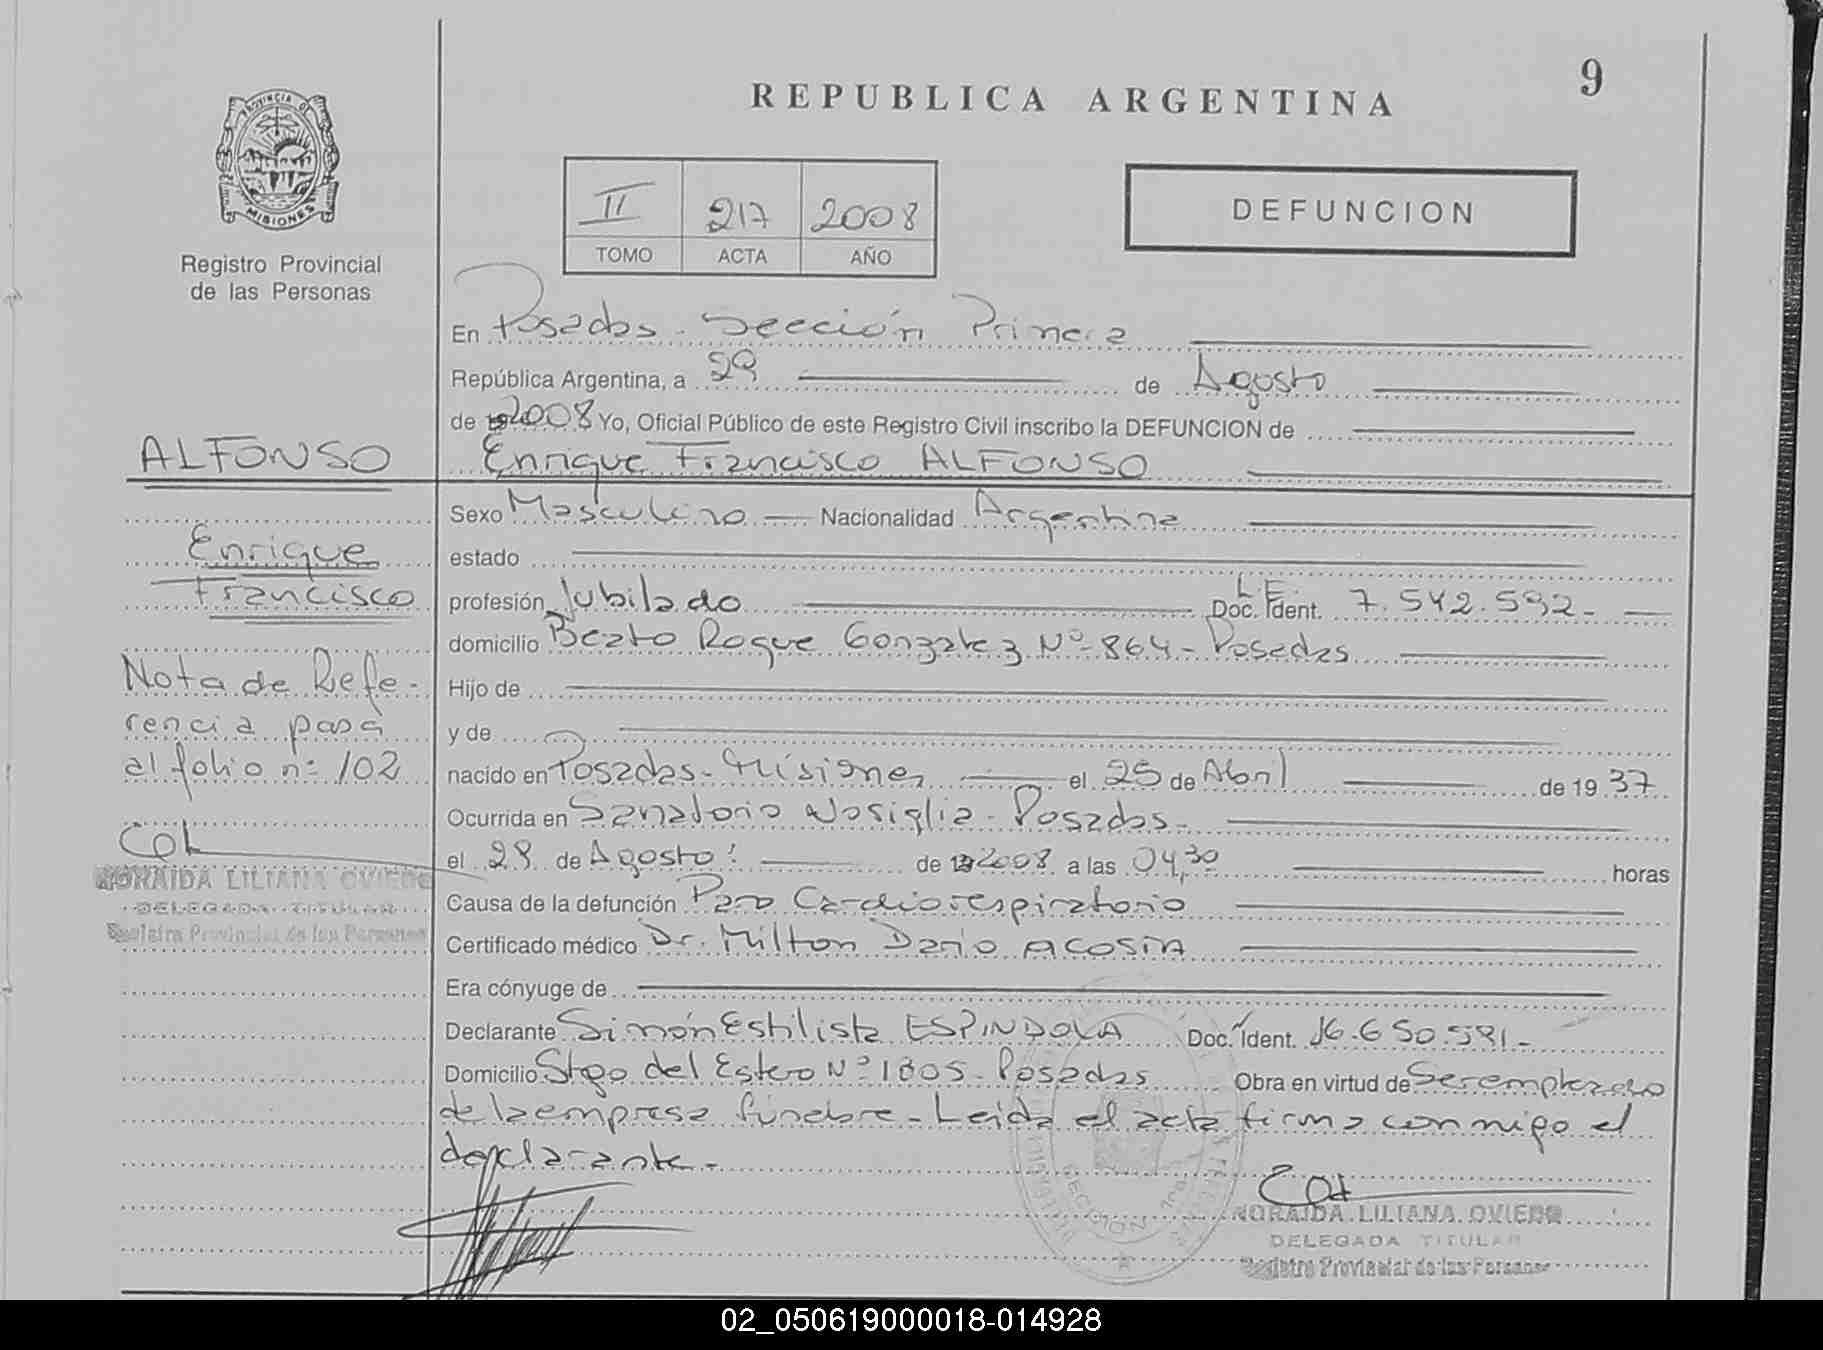 9
REPUBLICA ARGENTINA
PROVINCIA DE
MISIONES
Registro Provincial
de las Personas
II 217 2008
TOMO ACTA AÑO
DEFUNCION
En Posadas - Sección Primera
República Argentina, a 29 de Agosto
de 2008 Yo, Oficial Público de este Registro Civil inscribo la DEFUNCION de
Enrique Francisco ALFONSO
ALFONSO
Enrique
Francisco
Nota de Refe-
rencia pasa
al folio nº 102
NORAIDA LILIANA OVIEDO
DELEGADA TITULAR
Registro Provincial de las Personas
Sexo Masculino Nacionalidad Argentina
estado
profesión Jubilado L.E. Doc. Ident. 7.542.592-
domicilio Beato Roque Gonzalez Nº 864 - Posadas
Hijo de
y de
nacido en Posadas - Misiones el 25 de Abril de 1937
Ocurrida en Sanatorio Nosiglia - Posadas -
el 28 de Agosto de 2008 a las 04,30 horas
Causa de la defunción Paro Cardiorespiratorio
Certificado médico Dr. Milton Dario ACOSTA
Era cónyuge de
Declarante Simón Estilista ESPINDOLA Doc. Ident. 16.650.591-
Domicilio Stgo del Estero Nº 1805 - Posadas Obra en virtud de Ser empleado
de la empresa fúnebre - Leida el acta firma conmigo el
declarante -
SECCION 1ra
NORAIDA LILIANA OVIEDO
DELEGADA TITULAR
Registro Provincial de las Personas
02_050619000018-014928